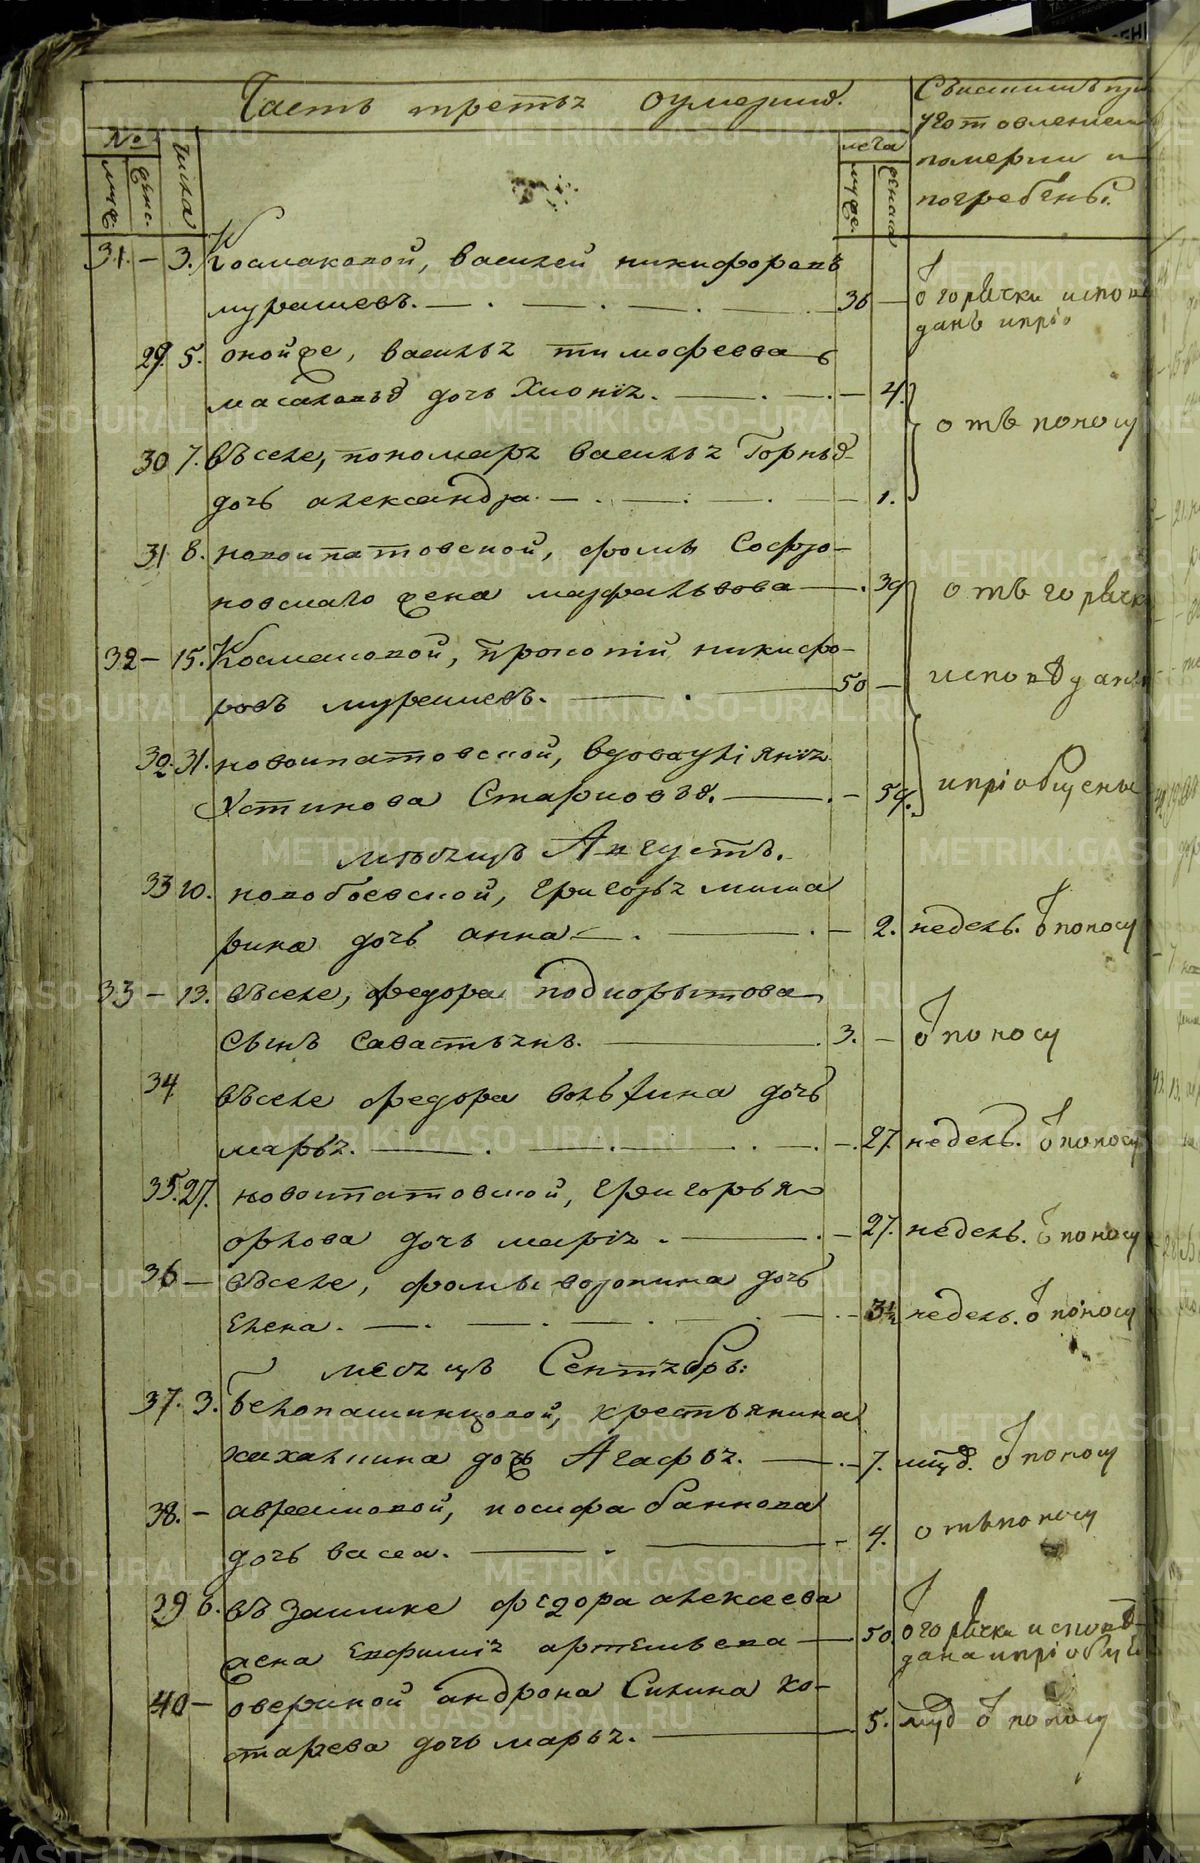 Часть третья о умерших.
№
муж.
женс.
числа
лета
муж.
женска
С какими при
уготовлениеми
померли и
погребены.
31. — 3. Космаковой, василей никифоровъ
мурашевъ. — 36 —
ѿ горячки испове
данъ и прio
29. 5. оной же, василья тимофеева
дочь Хионiя. — 4.
отъ поносу
30 7. въ селе, пономаря василья Горныхъ
дочь александра. — 1.
31 8. новоипатовской, фомы Софро-
новскаго жена марфа львова — 39
отъ горячки
32 — 15. Космаковой, прокопiй никифо-
ровъ мурашевъ. — 50 —
исповѣданы
32. 31. новоипатовской, вдова улiянiя
Устинова Старковыхъ. — 59.
и прiобщены
месяцъ Августъ.
33 10. новобоевской, григорья миша
рина дочь анна — 2. недель. ѿ поносу
33 — 13. въ селе, федора подкорытова
сынъ савастьянъ. — 3. — ѿ поносу
34 въ селе федора дочь
марья. — 27. недель. ѿ поносу
35. 27. новоипатовской, григорья
орлова дочь марiя. — 27. недель. ѿ поносу
36 — въ селе, фомы воронина дочь
Елена. — 3½ недель. ѿ поносу
месяцъ Сентябрь:
37. 3. белопашинцовой, крестьянина
дочь Агафья. — 7. ѿ поносу
38. — аврамовой, иосифа баннова
дочь васса. — 4. отъ поносу
39 6. въ Заимке федора алексеева
жена Евфимiя артемьева — 50. ѿ горячки исповѣ-
дана и прiобще
40 — Товериной андрона Силина Ко-
старева дочь марья. — 5. ѿ поносу
METRIKI.GASO-URAL.RU